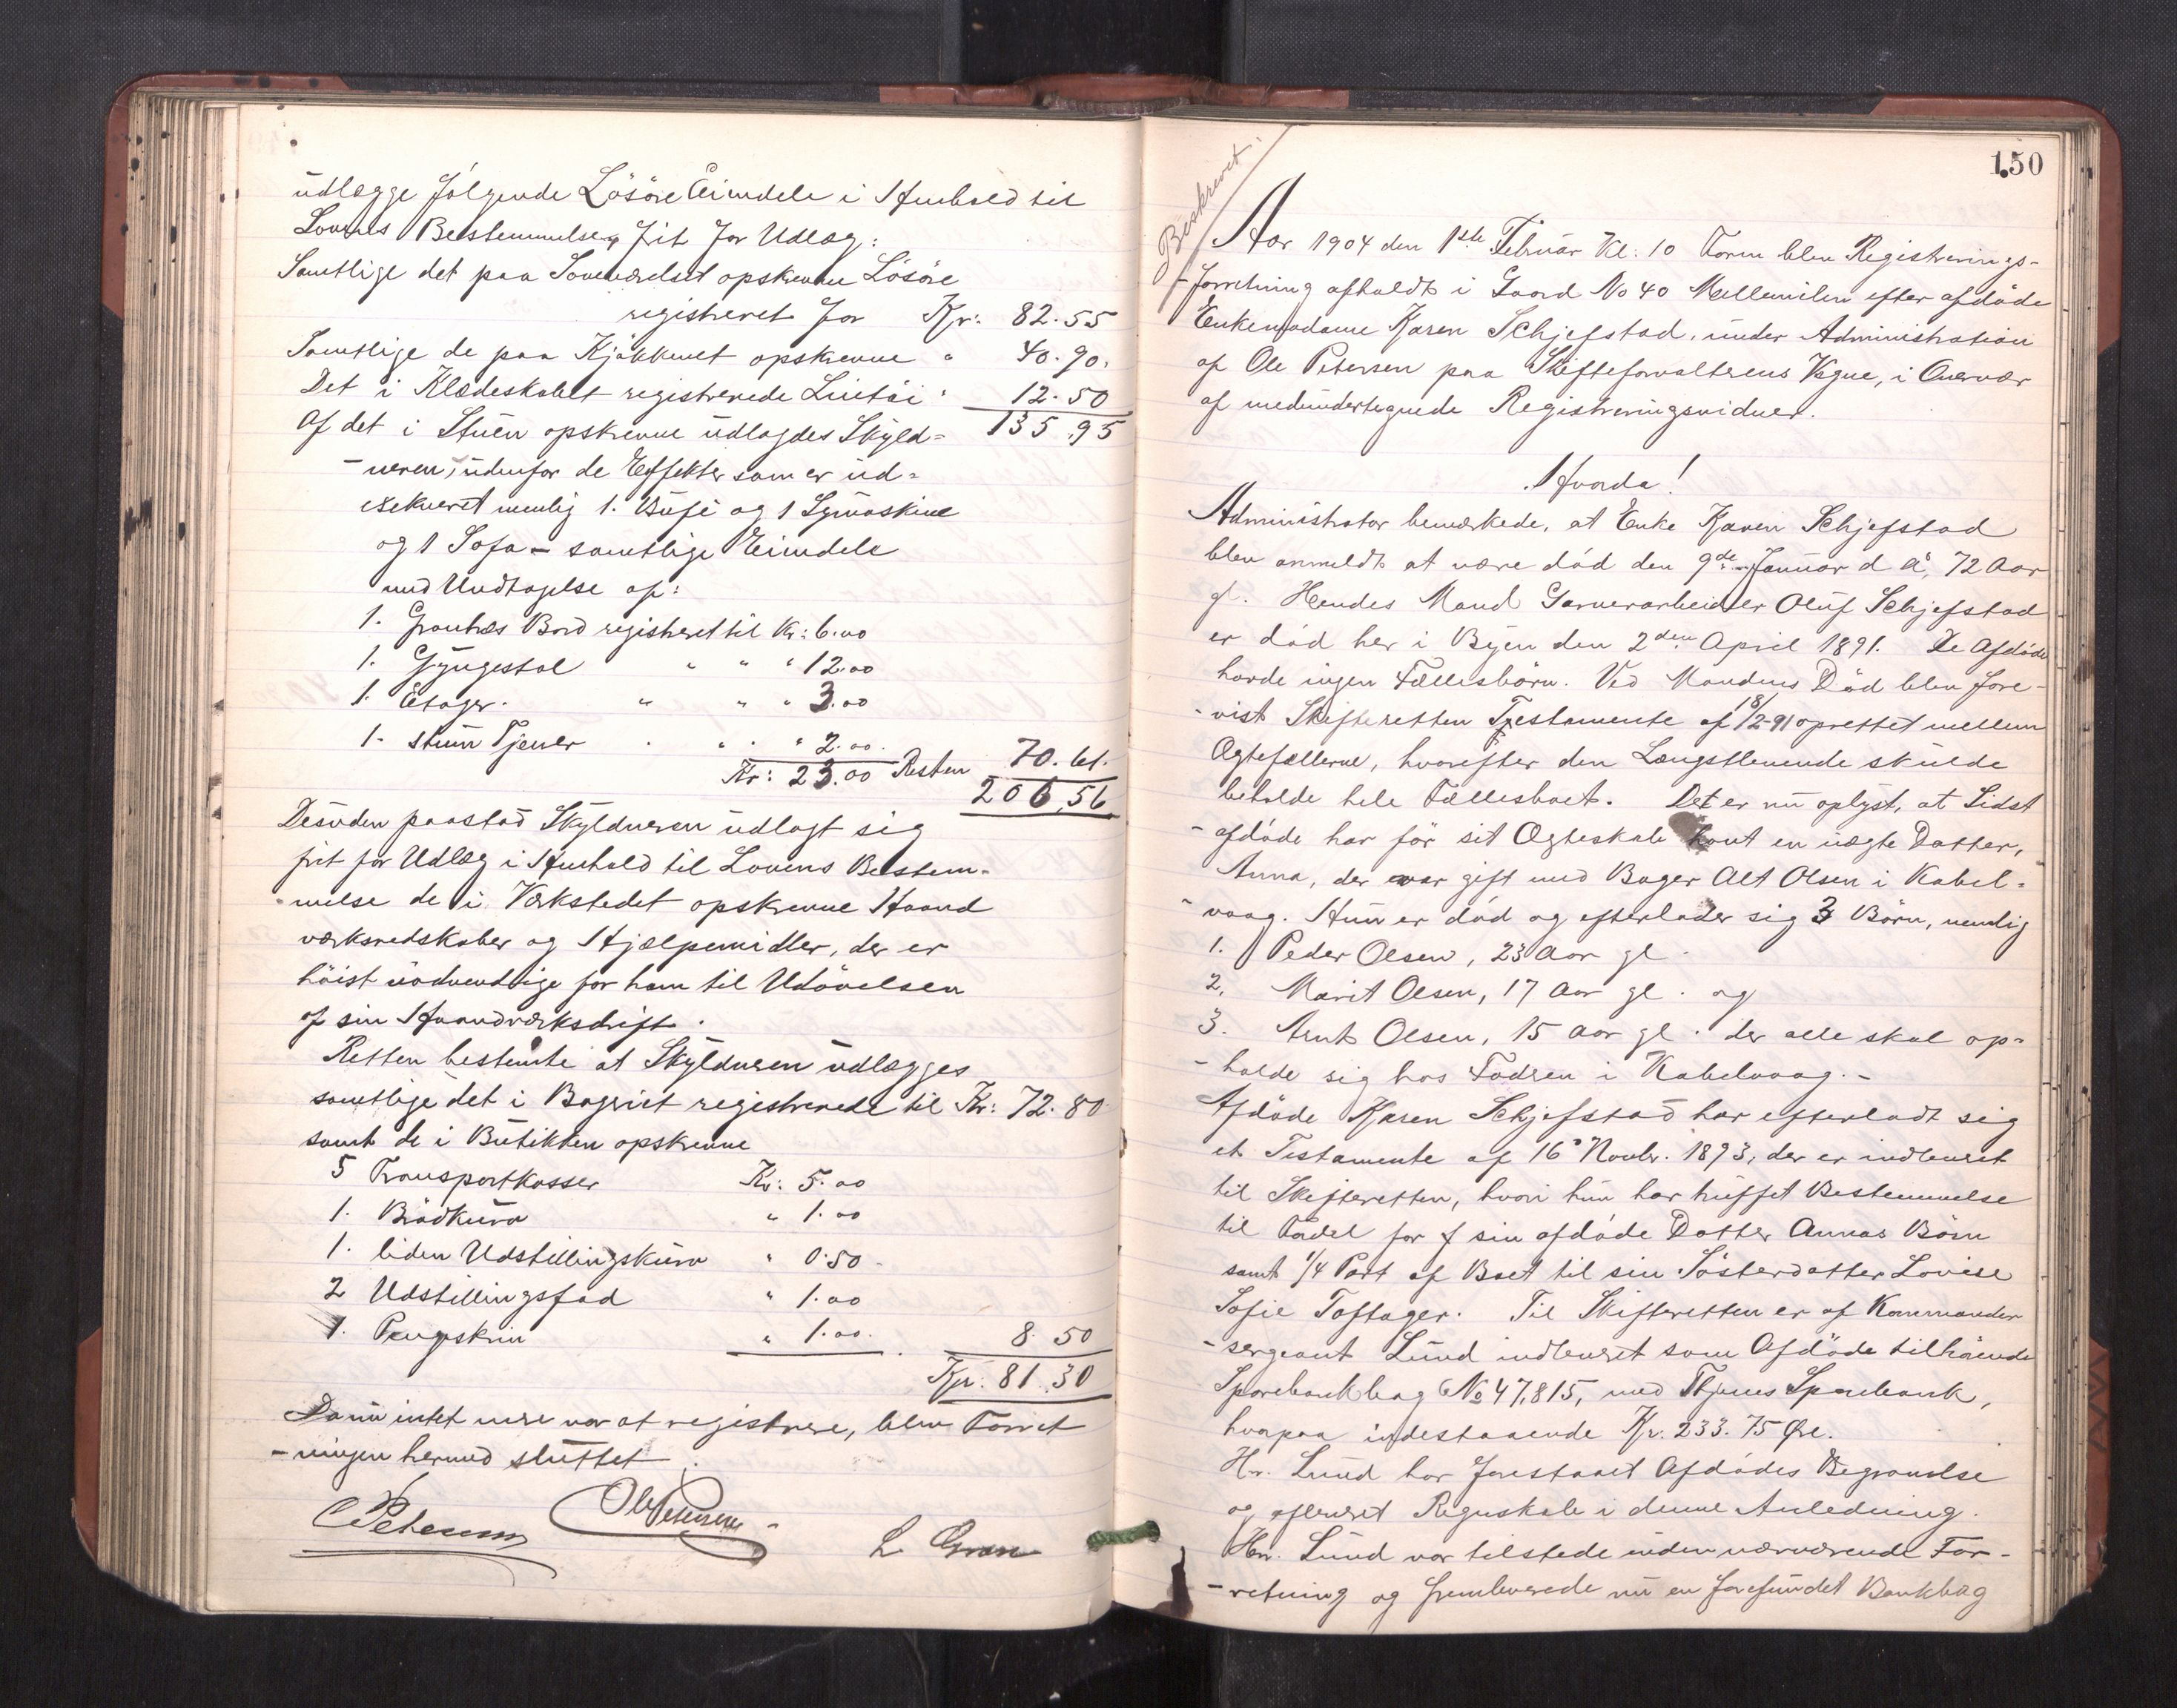 udlægge følgende Løsøre Eiendele i Henhold til
Lovens Bestemmelser frit for Udlæg:
Samtlige det paa Soveværelset opskrevne Løsøre
registreret for Kr: 82.55
Samtlige de paa Kjøkkenet opskrevne " 40.90.
Det i Klædeskabet registrerede Lintøi " 12.50
135.95
Af det i Stuen opskrevne udlagdes Skyld=
-neren, udenfor de Effekter som er ud=
exekveret nemlig 1. Buffe og 1 Symaskine
og 1 Sofa - samtlige Eiendele
med Undtagelse af:
1. Bord registreret til Kr: 6.00
1. Gyngestol " " " 12.00
1. Etager. " " " 3.00
1. stum Tjener " " " 2.00.
Kr: 23.00 Resten 70.61.
206,56
Desuden paastod Skyldneren udlagt sig
frit for Udlæg i Henhold til Lovens Bestem-
-melse de i Værkstedet opskrevne Haand
værksredskaber og Hjælpemidler, der er
høist nødvendige for ham til Udøvelsen
af sin Haandværksdrift.
Retten bestemte at Skyldneren udlægges
samtlige det i Bageriet registrerede til Kr: 72.80
samt de i Butikken opskrevne
5 Transportkasser Kr: 5.00
1. Brødkurv " 1.00
1. liden Udstillingskurv " 0.50
2 Udstillingsfad " 1.00
1. Pengeskrin " 1.00. 8.50
Kr. 81.30
Da nu intet mere var at registrere, blev Forret
-ningen hermed sluttet.
C Petersen Ole Petersen L Gran
150
Beskrevet.
Aar 1904 den 1ste Februar Kl: 10 Form blev Registrerings-
-forretning afholdt i Gaard No 40 Mellemilen efter afdøde
Enkemadame Karen Schjefstad, under Administration
af Ole Petersen paa Skifteforvalterens Vegne, i Overvær
af medundertegnede Registreringsvidner.
Hvorda!
Administrator bemærkede, at Enke Karen Schjefstad
blev anmeldt at være død den 9de Januar d A, 72 Aar
gl. Hendes Mand Garverarbeider Oluf Schjefstad
er død her i Byen den 2den April 1891. De Afdøde
havde ingen Fællesbørn. Ved Mandens Død blev fore-
-vist Skifteretten Testamente af 18/2-91 oprettet mellem
Ægtefællerne, hvorefter den Længstlevende skulde
beholde hele Fællesboet. Det er nu oplyst, at Sidst
-afdøde har før sit Ægteskab havt en uægte Datter,
Anna, der var gift med Bager Alt Olsen i Kabel-
-vaag. Hun er død og efterlader sig 3 Børn, nemlig
1. Peder Olsen, 23 Aar gl.
2. Marit Olsen, 17 Aar gl. og
3. Arnt Olsen, 15 Aar gl. der alle skal op-
-holde sig hos Fadren i Kabelvaag.-
Afdøde Karen Schjefstad har efterladt sig
et Testamente af 16' Novbr. 1893, der er indleveret
til Skifteretten, hvori hun har truffet Bestemmelse
til Fordel for sin afdøde Datter Annas Børn
samt 1/4 Part af Boet til sin Søsterdatter Lovise
Sofie Toftager. Til Skifteretten er af Kommander
-sergeant Lund indleveret som Afdøde tilhørende
Sparebankbog No 47,815, med Thjems Sparebank,
hvorpaa indestaaende Kr. 233.75 Øre.
Hr. Lund har forestaaet Afdødes Begravelse
og afleveret Regnskab i denne Anledning.
Hr. Lund var tilstede under nærværende For-
-retning og fremleverede nu en forefundet Bankbog